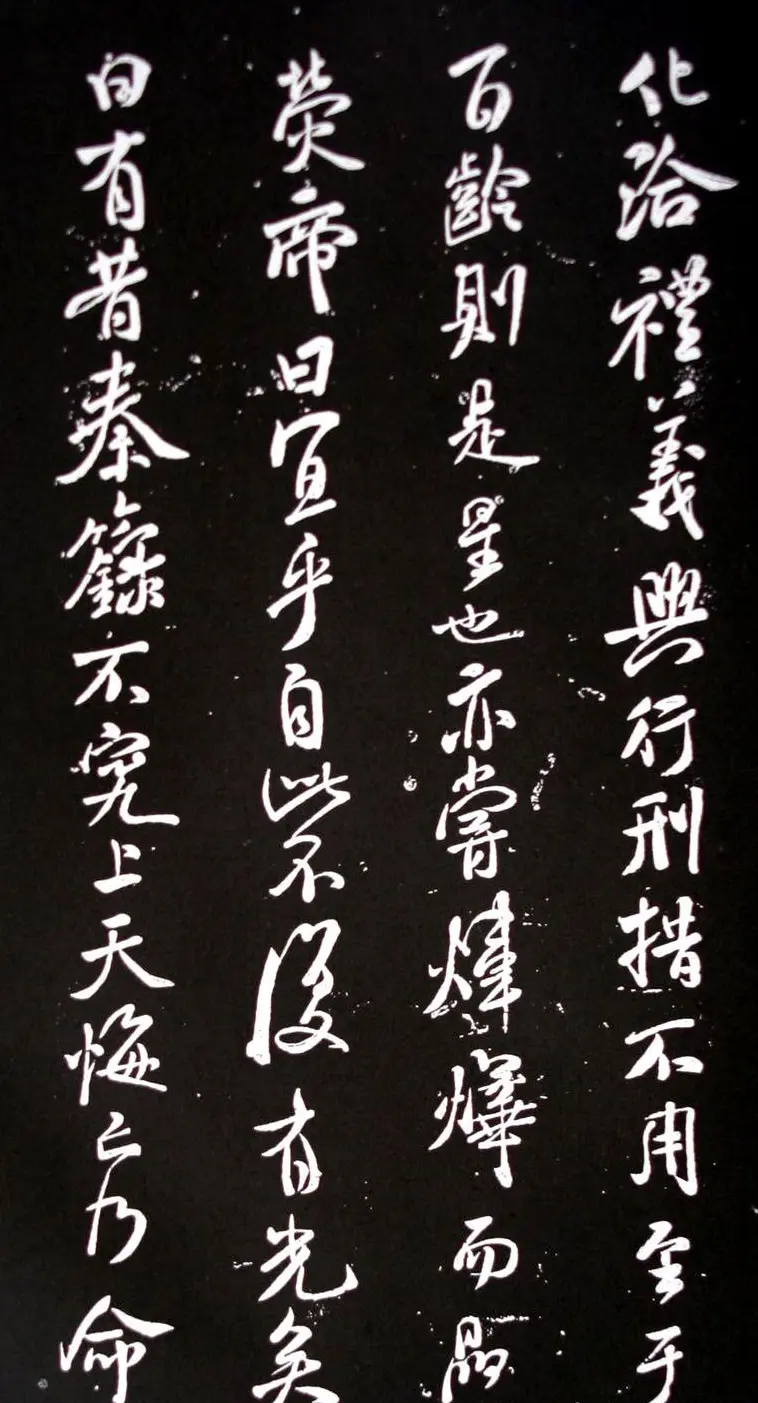 化洽禮義興行刑措不用至于
百齡則是星也亦嘗煒燁而晶
熒帝曰宜乎自此不復有光矣
曰有昔秦籙不究上天悔亡乃命